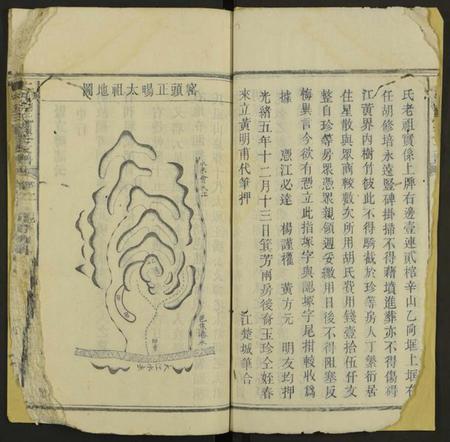 氏老祖實係上牌右邊壹連貳棺辛山乙向堰上堰右
任胡修培永遠豎碑掛掃不得藉墳進葬亦不得傷碍
江黃界內樹竹彼此不得騎截於珍等房人丁繁衍居
住星散與眾商較數次所用胡氏費用錢壹拾伍仟文
整自珍等房眾憑眾親領週妥繳用日後不得阻塞反
悔異言今欲有憑立此指塚字與認塚字尾拑較收爲
據 憑江必達 楊謹權 黃方元 明友均押
光緒五年十二月十三日箕芳兩房後裔玉珍仝姪春
來立黃明甫代筆押 江楚城筆合
窰頭正暘太祖地圖